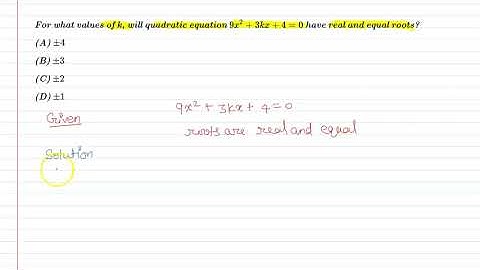 For what values of k, will quadratic equation 9x² + 3kx + 4 = 0 have real and equal roots?
(A) ±4
(B) ±3
(C) ±2
(D) ±1
Given
9x² + 3kx + 4 = 0
roots are real and equal
Solution